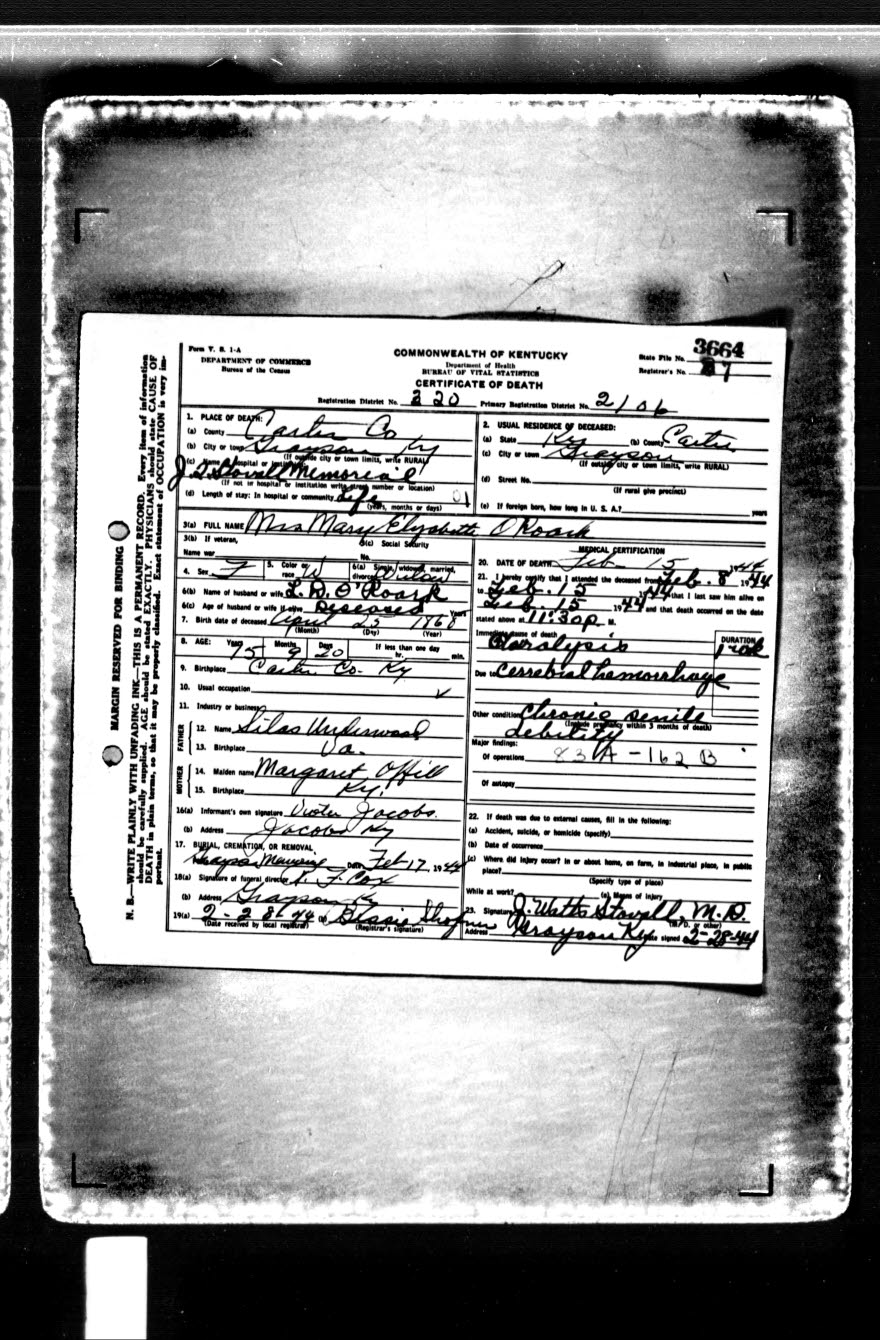 Form V. S. 1-A
DEPARTMENT OF COMMERCE
Bureau of the Census
COMMONWEALTH OF KENTUCKY
Department of Health
BUREAU OF VITAL STATISTICS
CERTIFICATE OF DEATH
State File No. 3664
Registrar's No. 7
Registration District No. 220 Primary Registration District No. 2106
1. PLACE OF DEATH:
(a) County Carter Co
(b) City or town Grayson Ky
(If outside city or town limits, write RURAL)
(c) Name of hospital or institution
Stovall Memorial
(If not in hospital or institution write street number or location)
(d) Length of stay: In hospital or community Life
(years, months or days)
2. USUAL RESIDENCE OF DECEASED:
(a) State Ky (b) County Carter
(c) City or town Grayson
(If outside city or town limits, write RURAL)
(d) Street No.
(If rural give precinct)
(e) If foreign born, how long in U. S. A.? years
3(a) FULL NAME Mrs Mary Elizabeth O Roark
3(b) If veteran, 3(c) Social Security
Name war No.
4. Sex F 5. Color or race W 6(a) Single, widowed, married, divorced Widow
6(b) Name of husband or wife L. D. O'Roark
6(c) Age of husband or wife if alive Deseased Years
7. Birth date of deceased April 25 1868
(Month) (Day) (Year)
8. AGE: Years Months Days If less than one day
75 9 20 hr. min.
9. Birthplace Carter Co. Ky
10. Usual occupation
11. Industry or business
FATHER
12. Name Silas Underwood
13. Birthplace Va.
MOTHER
14. Maiden name Margaret Offill
15. Birthplace Ky.
16(a) Informant's own signature Jacobs.
(b) Address Jacobs Ky
17. BURIAL, CREMATION, OR REMOVAL
Grayson Date Feb 17, 1944
18(a) Signature of funeral director F. Cox
(b) Address Grayson Ky
19(a) 2-28-44 (b) Bessie
(Date received by local registrar) (Registrar's signature)
MEDICAL CERTIFICATION
20. DATE OF DEATH Feb 15 1944
21. I hereby certify that I attended the deceased from Feb. 8 1944
to Feb. 15 1944 that I last saw him alive on
Feb. 15 1944 and that death occurred on the date
stated above at 11:30 p. M.
Immediate cause of death
Paralysis
DURATION
Due to Cerrebral hemorrhage
Other conditions Chronic senile
(Include pregnancy within 3 months of death)
debility
Major findings:
Of operations 83A-162B
Of autopsy
22. If death was due to external causes, fill in the following:
(a) Accident, suicide, or homicide (specify)
(b) Date of occurrence
(c) Where did injury occur? In or about home, on farm, in industrial place, in public
place?
(Specify type of place)
While at work? (e) Means of injury
23. Signature J. Watts Stovall, M. D.
(M. D. or other)
Address Grayson Ky Date signed 2-28-44
MARGIN RESERVED FOR BINDING
N. B.—WRITE PLAINLY WITH UNFADING INK—THIS IS A PERMANENT RECORD. Every item of information
should be carefully supplied. AGE should be stated EXACTLY. PHYSICIANS should state CAUSE OF
DEATH in plain terms, so that it may be properly classified. Exact statement of OCCUPATION is very im-
portant.